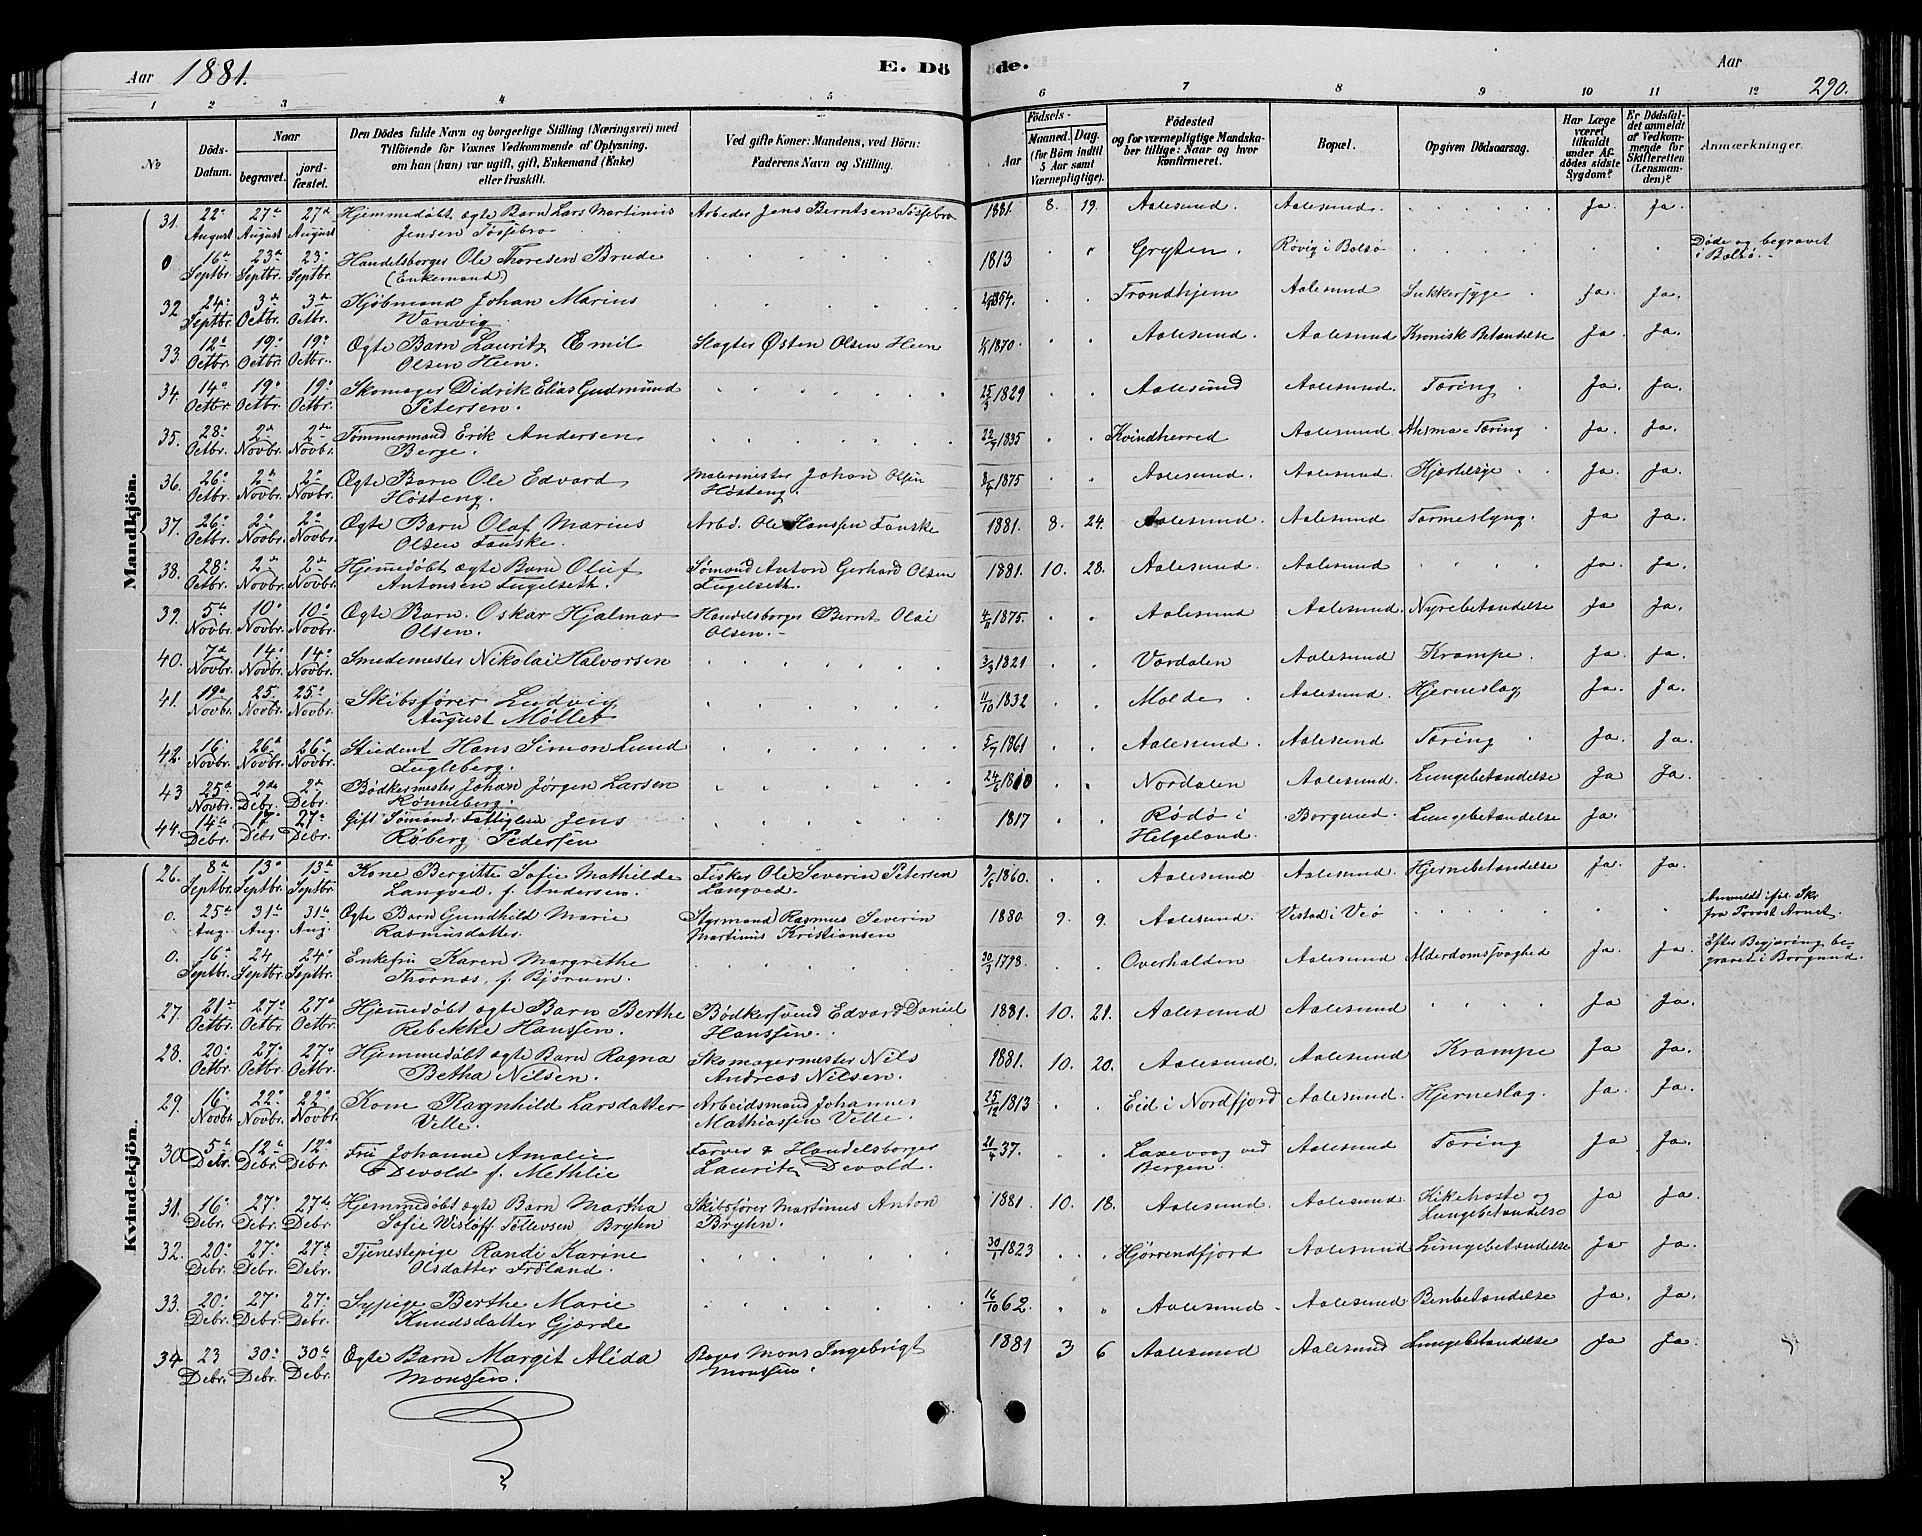 Aar 1881. E. Dö de. Aar 290.
1 2 3 4 5 6 7 8 9 10 11 12
No Döds-Datum. Naar begravet. jordfæstet. Den Dödes fulde Navn og borgerlige Stilling (Næringsvei) med Tilföiende for Voxnes Vedkommende af Oplysning, om han (hun) var ugift, gift, Enkemand (Enke) eller fraskilt. Ved gifte Koner: Mandens, ved Börn: Faderens Navn og Stilling. Födsels- Aar Maaned. Dag. (for Börn indtil 5 Aar samt Værnepligtige). Födested og for værnepligtige Mandskaber tillige: Naar og hvor konfirmeret. Bopæl. Opgiven Dödsaarsag. Har Læge været tilkaldt under Afdödes sidste Sygdom? Er Dödsfaldet anmeldt af Vedkommende for Skifteretten (Lensmanden)? Anmærkninger.
Mandkjön.
31. 22de August 27de August 27de August Hjemmedøbt ægte Barn Lars Martinius Jensen Tøssebro Arbeder Jens Berntsen Tøssebro 1881. 8. 19. Aalesund. Aalesund. Ja. Ja.
0 16de Septbr. 23de Septbr. 23de Septbr. Handelsborger Ole Thoresen Brude (Enkemand) 1813 Gryten. Røvig i Bolsø Døde og begravet i Bolsø.
32 24de Septbr. 3de Octbr. 3de Octbr. Kjøbmand Johan Marius Wanvig 1854. Trondhjem Aalesund Sukkersyge Ja. Ja.
33. 12te Octbr. 19de Octbr. 19de Octbr. Ægte Barn Lauritz Emil Olsen Heen. Slagter Østen Olsen Heen 1870. Aalesund. Aalesund Kronisk Betændelse Ja. Ja.
34. 14de Octbr. 19de Octbr. 19de Octbr. Skomager Didrik Elias Gudmund Petersen. 25/3 1829 Aalesund Aalesund. Tæring Ja. Ja.
35. 28de Octbr. 2den Novbr. 2den Novbr. Tømmermand Erik Andersen Berge. 22/7 1835 Kvindherred Aalesund. Ahsma - Tæring Ja. Ja.
36. 26de Octbr. 2den Novbr. 2den Novbr. Ægte Barn Ole Edvard Høsteng. Malermister Johan Olsen Høsteng. 1875 Aalesund. Aalesund. Kjertelsge Ja. Ja.
37. 26de Octbr. 2den Novbr. 2den Novbr. Ægte Barn Olaf Marius Olsen Fauske. Arbd. Ole Hanssen Fauske 1881. 8. 24. Aalesund. Aalesund Tarmeslyng. Ja. Ja
38. 28de Octbr. 2den Novbr. 2den Novbr. Hjemedøbt ægte Barn Oluf Antonsen Fugelseth. Sømand Anton Gerhard Olsen Fugelseth. 1881. 10. 28. Aalesund. Aalesund Ja. Ja.
39. 5te Novbr. 10de Novbr. 10de Novbr. Ægte Barn. Oskar Hjalmar Olsen. Handelsborger Bernt Olai Olsen. 4/11 1875. Aalesund Aalesund. Nyrebetændelse Ja Ja.
40. 7de Novbr. 14de Novbr. 14de Novbr. Smedemester Nikolai Halvorsen 3/3 1821 Værdalen Aalesund Krampe. Ja. Ja.
41. 19de Novbr. 25. Novbr. 25de Novbr. Skibsfører Ludvig August Møller 11/10 1832 Molde Aalesund. Hjerneslag Ja. Ja.
42. 16de Novbr. 26de Novbr. 26de Novbr. Student Hans Simon Lund Fugleberg. 5/7 1861 Aalesund. Aalesund Tæring Ja. Ja.
43 25de Novbr. 2den Debr. 2den Debr. Bødkermester Johan Jørgen Larsen Rønneberg. 24/6 1810 Nordalen Aalesund. Lungebetændelse Ja Ja.
44. 14de Debr. 17 Debr 27de Debr. Gift Sømand, Fattiglem Jens Røberg Pedersen 1817 Rødø i Helgeland. Borgund. Lungebetændelse Ja.
Kvindekjön.
26. 8de Septbr. 13de Septbr. 13de Septbr. Kone Bergitte Sofie Mathilde Langved, f. Andersen. Fisker Ole Severin Petersen Langved. 1860. Aalesund Aalesund. Hjernebetændelse Ja. Ja.
0. 25de Aug. 31te Aug. 31te Aug. Ægte Barn Gundhild Marie Rasmusdatter. Styrmand Rasmus Severin Martinus Kristiansen 1880 9. 9. Aalesund. Vestad i Veø Anmeldt iføl. Skr. fra Provst Arnet.
0. 16de Septbr. 24 Septbr. 24de Septbr. Enkefru Karen Margrethe Thornæs, f. Bjørum. 30/7 1798 Overhalden Aalesund Alderdomssvaghed Ja. Ja. Efter Begjæring begravet i Borgund.
27. 21de Octbr. 27de Octbr. 27de Octbr. Hjemedøbt ægte Barn Berthe Rebekke Hanssen. Bødkersvend Edvard Daniel Hanssen. 1881. 10. 21. Aalesund Aalesund Ja Ja.
28. 20de Octbr. 27de Octbr. 27de Octbr. Hjemmedøbt ægte Barn Ragna Betha Nilsen. Skomagermester Nils Andreas Nilsen. 1881. 10. 20. Aalesund. Aalesund Krampe Ja Ja.
29. 16de Novbr. 22de Novbr. 22de Novbr. Kone Ragnhild Larsdatter Velle. Arbeidsmand Johannes Mathiassen Velle 25/12 1813 Eid i Nordfjord Aalesund. Hjerneslag. Ja. Ja.
30. 5te Debr. 12te Debr. 12te Debr. Fru Johanne Amalie Devold f. Methlie Farver & Handelsborger Lauritz Devold. 21/4 37. Laxevaag ved Bergen. Aalesund Tæring Ja Ja.
31. 16de Debr. 27de Debr. 27de Debr. Hjemmedøbt ægte Barn Martha Sofie Wisløff Tollevsen Bryhn Skibsfører Martinus Anton Bryhn. 1881 10. 18. Aalesund. Aalesund. Kikehoste og Lungebetændelse Ja Ja.
32. 20de Debr. 27de Debr. 27de Debr. Tjenestepige Randi Karine Olsdatter Frøland. 30/1 1823 Hjørrendfjord Aalesund Lungebetændelse Ja Ja.
33. 20de Debr. 27de Debr. 27de Debr. Sypige Berthe Marie Knudsdatter Gjærde 16/10 62. Aalesund Aalesund Benbetændelse Ja. Ja.
34 23 Debr. 30de Debr. 30de Debr. Ægte Barn Margit Alida Monssen. Bager Mons Ingebrigt Monssen. 1881 3 6 Aalesund Aalesund Lungebetændelse Ja Ja.